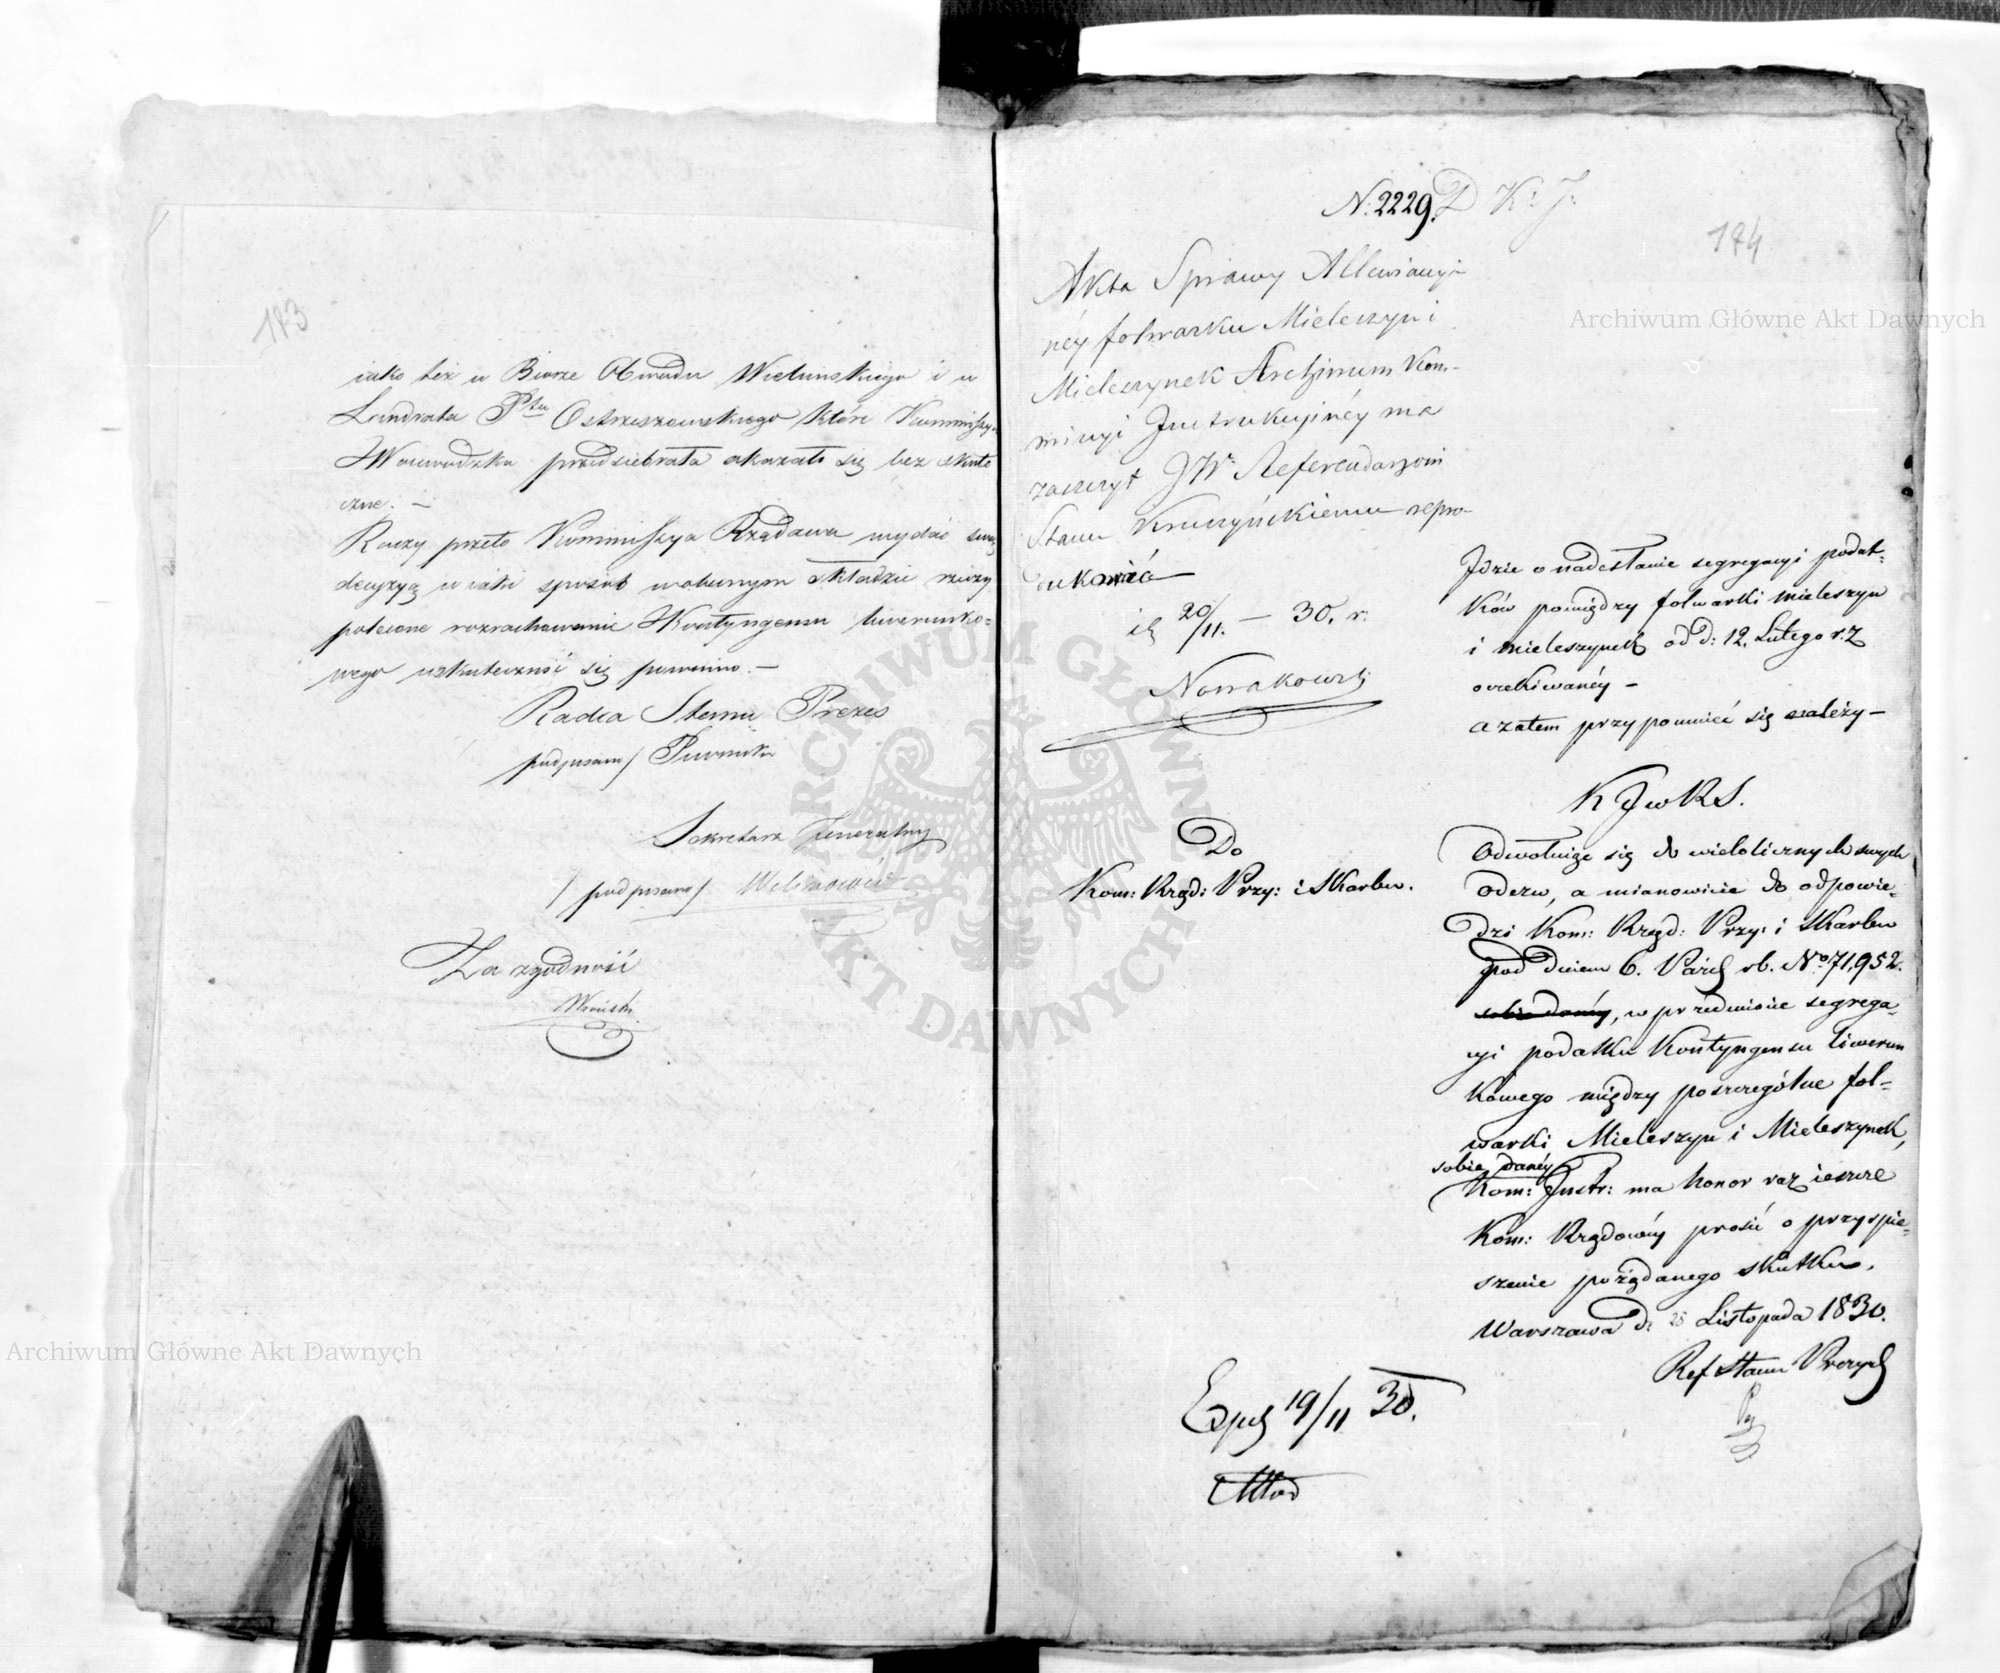 173
iako też w Biorze Obwodu Wieluńskiego i w
Landrata Ptu Ostrzeszowskiego które Kommissya
Woiewodzka przedsiebrała okazały się bez skute
czne. —
Raczy przeto Kommissya Rządowa wydać swą
decyzyą w iaki sposób w obecnym składzie rzeczy
polecone rozrachowanie Kontyngensu liwerunko=
wego uskutecznić się powinno. —
Radca Stanu Prezes
podpisano/ Piwnicki
Sekretarz Jeneralny
/podpisano/
Za zgodność
N: 2229. D K: J:
174
Akta Sprawy Allewiacyi
néy folwarku Mieleszyn i
Mieleszynek Archiwum Kom-
missyi Instrukcyjnéy ma
zaszczyt JW: Referendarzowi
Stanu Kruszyńskiemu repro-
dukować
20/11. — 30. r.
Nowakowski
Do
Kom: Rząd: Przy: i Skarbu.
Idzie o nadesłanie segregacyi podat=
ków pomiędzy folwarki Mieleszyn
i Mieleszynek od d: 12. Lutego r. z
oczekiwanéy —
a zatem przypomnieć się należy —
K J w K S.
Odwołuiąc się do wielolicznych swych
odezw, a mianowicie do odpowie=
dzi Kom: Rząd: Przy: i Skarbu
pod dniem 6. Paźdz rb. No 71,952.
sobie danéy, w przedmiocie segrega=
cyi podatku Kontyngensu liwerun
kowego między poszczególne fol=
warki Mieleszyn i Mieleszynek,
sobie danéy
Kom: Instr: ma honor raz ieszcze
Kom: Rządowéy prosić o przyspie=
szenie pożądanego skutku.
Warszawa d: 25 Listopada 1830.
Ref Stanu
19/11 30.
Archiwum Główne Akt Dawnych
Archiwum Główne Akt Dawnych
ARCHIWUM GŁÓWNE AKT DAWNYCH